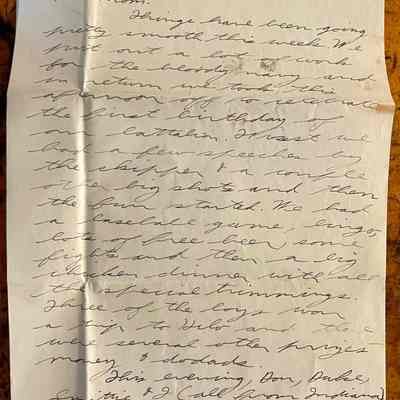 Mom:
Things have been going
pretty smooth this week. We
put out a lot of work
for the bloody navy and
in return we took this
afternoon off to celebrate
the first birthday of
our battalion. First we
had a few speeches by
the skipper & a couple
other big shots and then
the fun started. We had
a baseball game, bingo,
lots of free beer, some
fights and then a big
chicken dinner with all
the special trimmings.
Three of the boys won
a trip to Hilo and there
were several other prizes
money & dodads.
This evening, Don, Duke,
Smittie & I (all from Indiana)